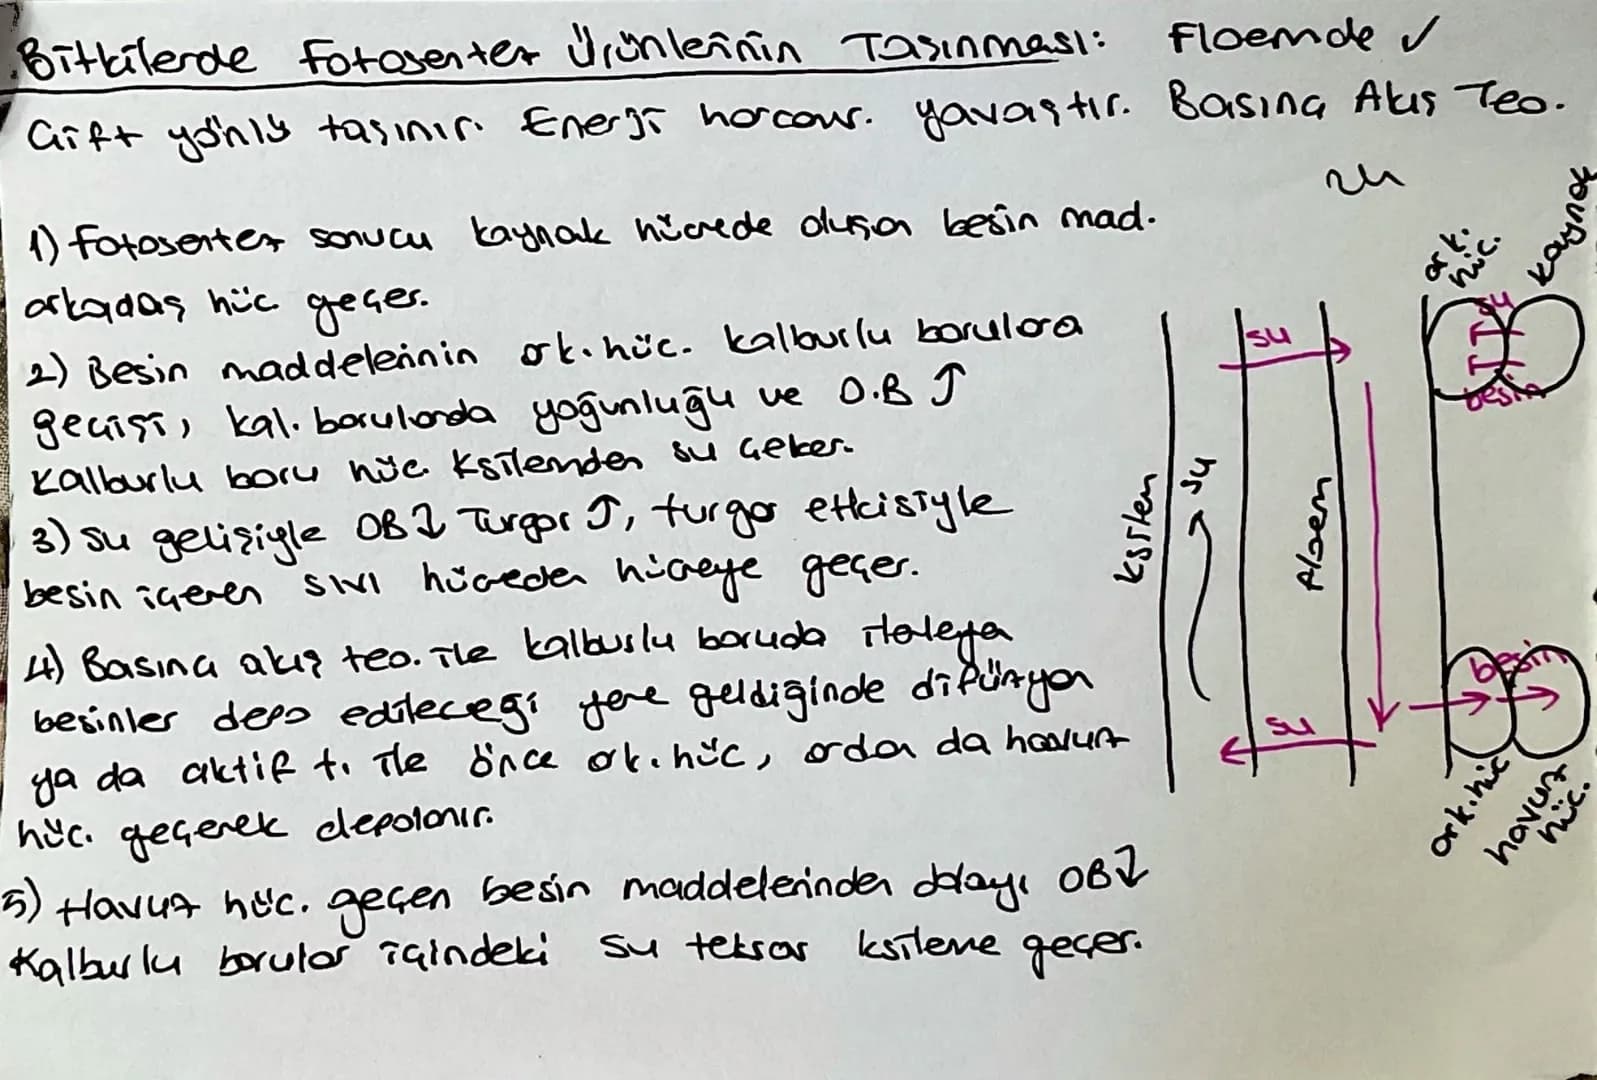 Bitkilerde Fotosentez Ürünlerinin Taşınması: Floemde ✓
Çift yönlü taşınır. Enerji harcanır. yavaştır. Basınç Akış Teo.
1) Fotosentez sonucu kaynak hücrede oluşan besin mad.
arkadaş hüc geçer.
2) Besin maddelerinin ark. hüc. kalburlu borulara
geçişi, kal. borularda yoğunluğu ve O.B ↑
Kalburlu boru hüc. Ksilemden su çeker.
3) Su gelişiyle OB↓ Turgor ↑, turgor etkisiyle
besin içeren sıvı hücreden hücreye geçer.
4) Basınç akış teo. ile kalburlu boruda ilerleyen
besinler depo edileceği yere geldiğinde difüzyon
ya da aktif t. ile önce ark. hüc, ordan da havuz
hüc. geçerek depolanır.
5) Havuz hüc. geçen besin maddelerinden dolayı OB↓
Kalburlu borular içindeki su tekrar ksileme geçer.
ark. hüc.
kaynak
su
su
besin
ksilem
su
Floem
besin
su
ark. hüc
havuz hüc.